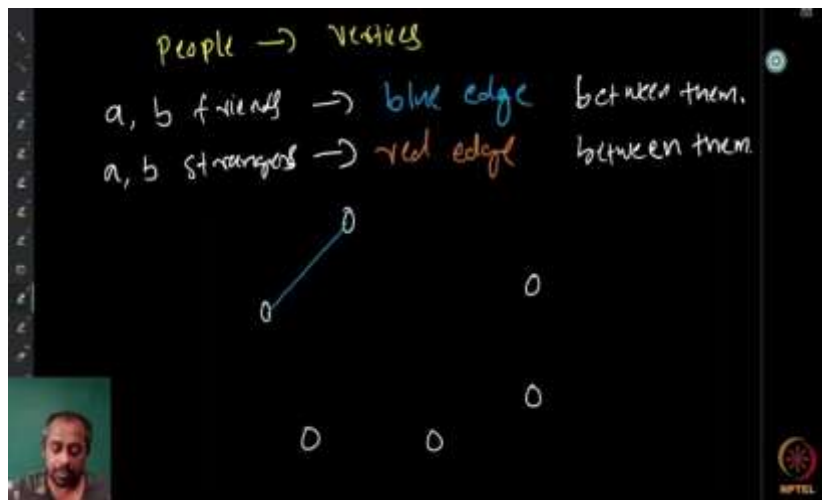 People → vertices
a, b friends → blue edge between them.
a, b strangers → red edge between them.
NPTEL